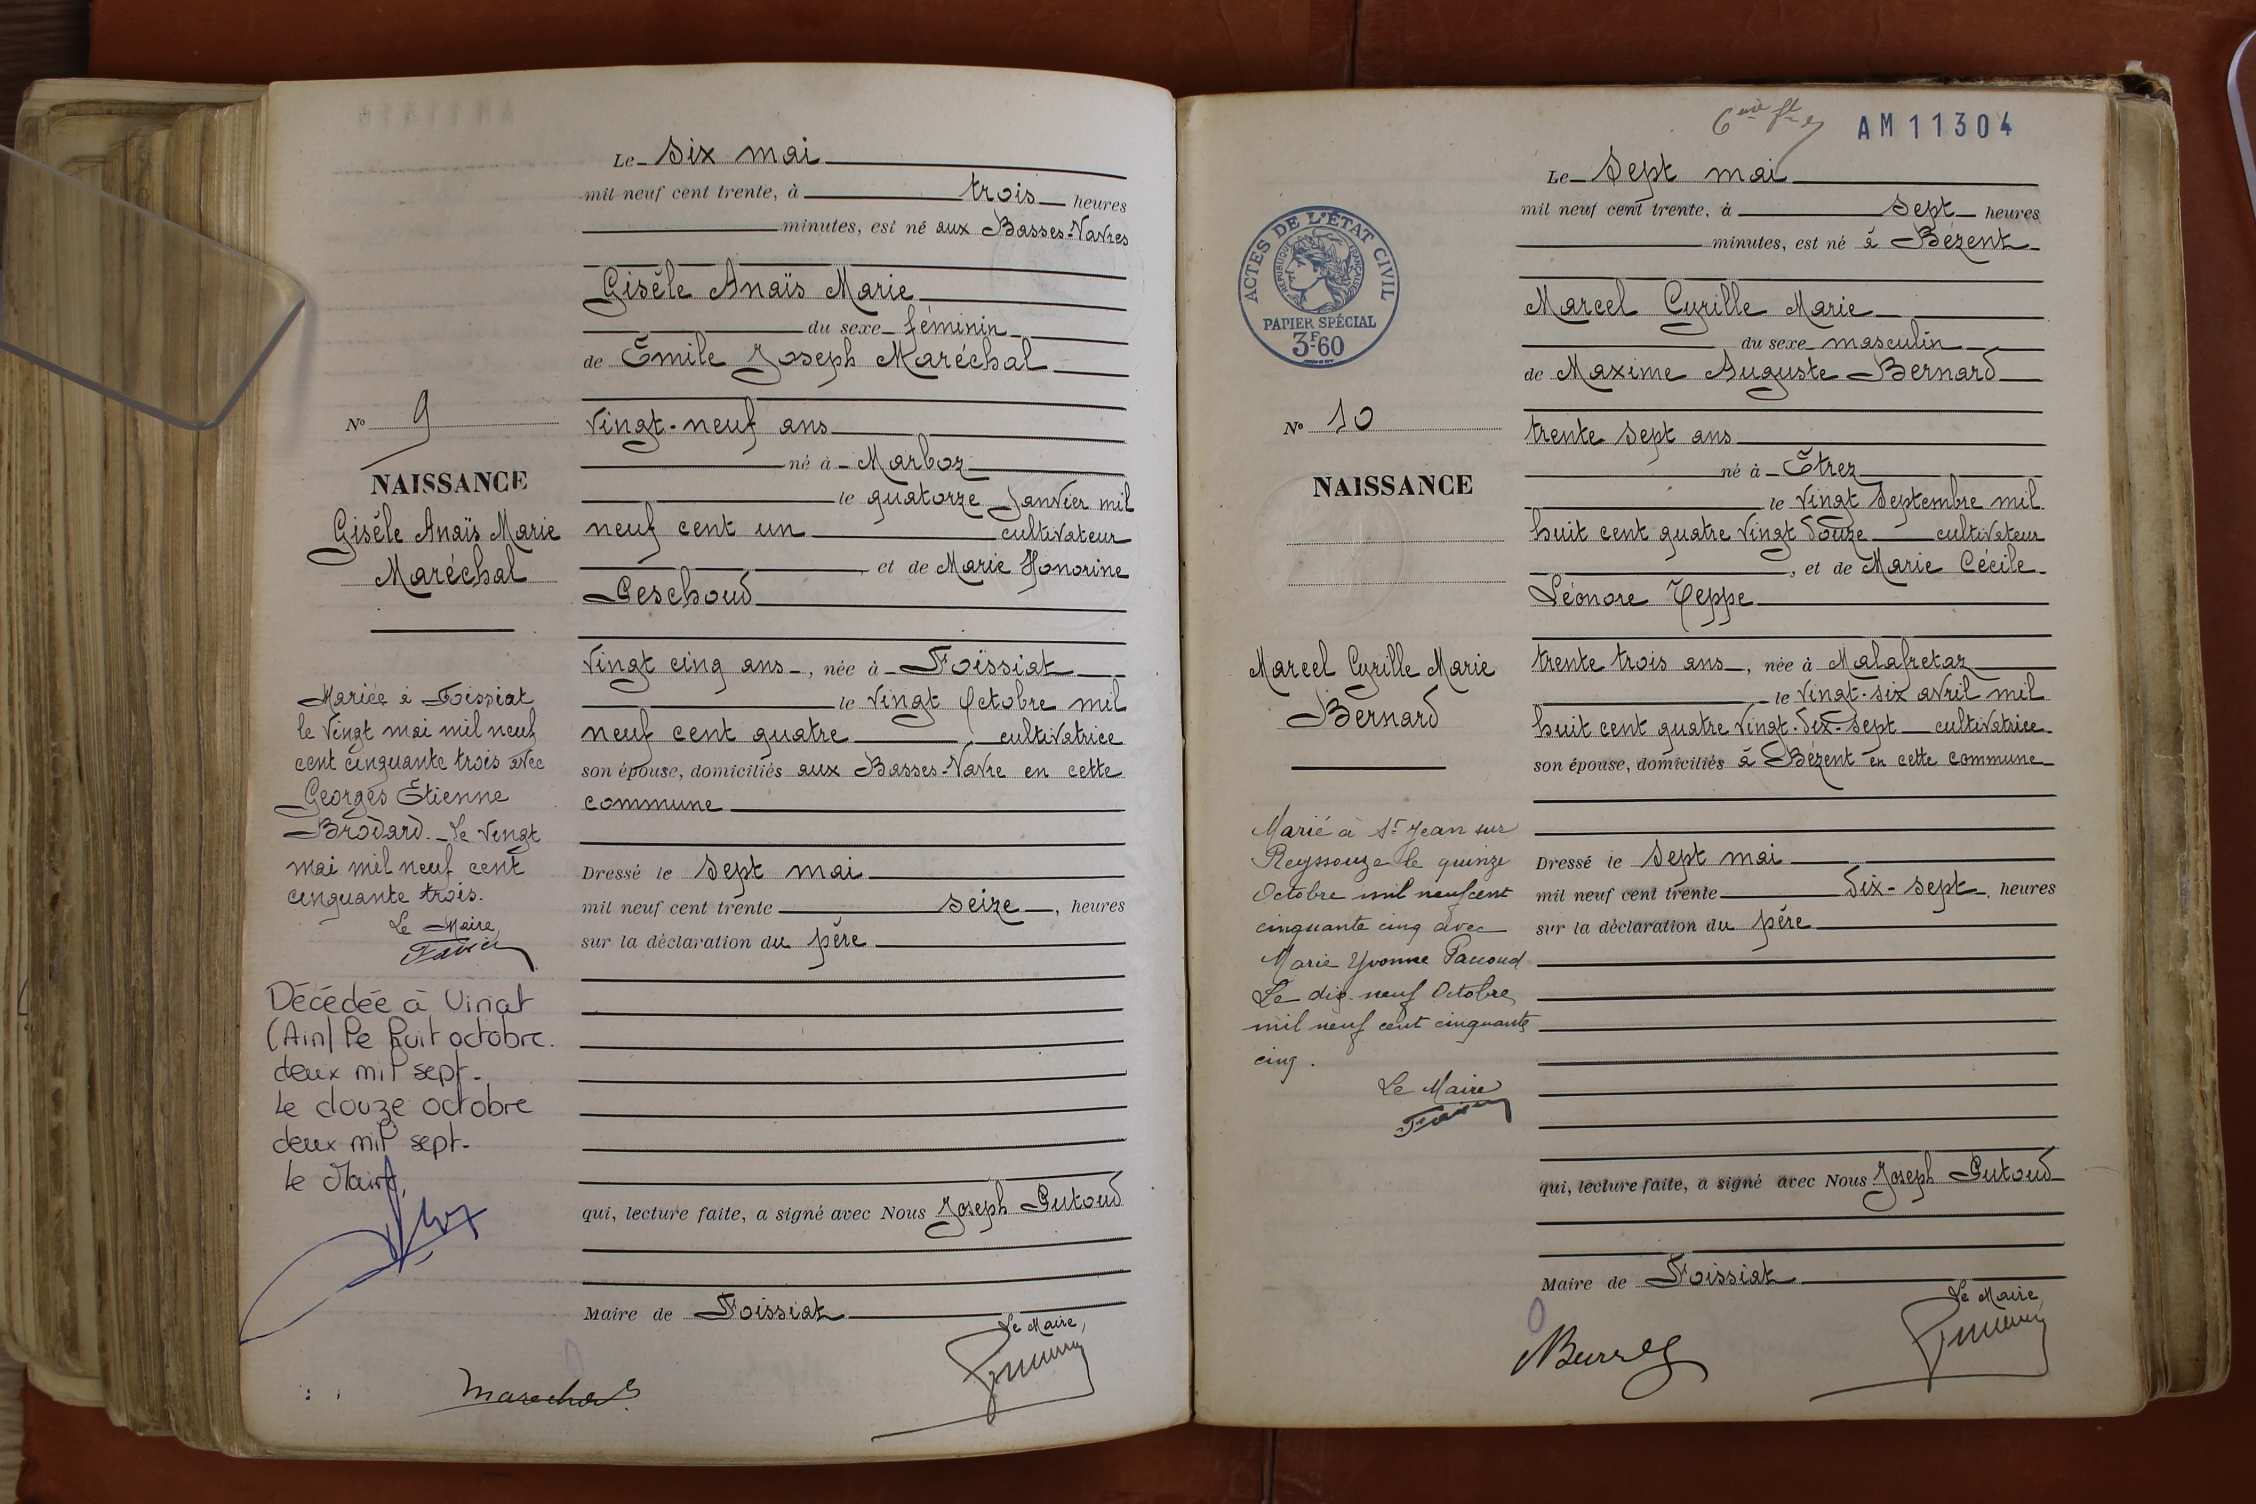 Le six mai
mil neuf cent trente, à trois heures
minutes, est né aux Basses-Navres
Gisèle Anaïs Marie
du sexe féminin
de Émile Joseph Maréchal
vingt-neuf ans
né à Marboz
le quatorze Janvier mil
neuf cent un cultivateur
, et de Marie Honorine
Peschoud
vingt cinq ans, née à Foissiat
le vingt Octobre mil
neuf cent quatre, cultivatrice
son épouse, domiciliés aux Basses-Navre en cette
commune
Dressé le sept mai
mil neuf cent trente seize, heures
sur la déclaration du père
qui, lecture faite, a signé avec Nous Joseph Putoud
Maire de Foissiat
Le Maire,
Marechal
N° 9
NAISSANCE
Gisèle Anaïs Marie
Maréchal
Mariée à Foissiat
le vingt mai mil neuf
cent cinquante trois avec
Georges Étienne
Brodard. Le vingt
mai mil neuf cent
cinquante trois.
Le Maire,
Décédée à Viriat
(Ain) le huit octobre
deux mil sept.
Le douze octobre
deux mil sept.
Le Maire,
AM11304
Le sept mai
mil neuf cent trente, à sept heures
minutes, est né à Bézent
Marcel Cyrille Marie
du sexe masculin
de Maxime Auguste Bernard
trente sept ans
né à Étrez
le vingt Septembre mil
huit cent quatre vingt douze cultivateur
, et de Marie Cécile
Léonore Teppe
trente trois ans, née à Malafretaz
le vingt-six avril mil
huit cent quatre vingt-dix-sept cultivatrice
son épouse, domiciliés à Bézent en cette commune
Dressé le sept mai
mil neuf cent trente dix-sept, heures
sur la déclaration du père
qui, lecture faite, a signé avec Nous Joseph Putoud
Maire de Foissiat
Le Maire,
ACTES DE L'ÉTAT CIVIL
RÉPUBLIQUE FRANÇAISE
PAPIER SPÉCIAL
3F60
N° 10
NAISSANCE
Marcel Cyrille Marie
Bernard
Marié à St Jean sur
Reyssouze le quinze
Octobre mil neuf cent
cinquante cinq avec
Marie Yvonne Pauoud
Le dix-neuf Octobre
mil neuf cent cinquante
cinq.
Le Maire